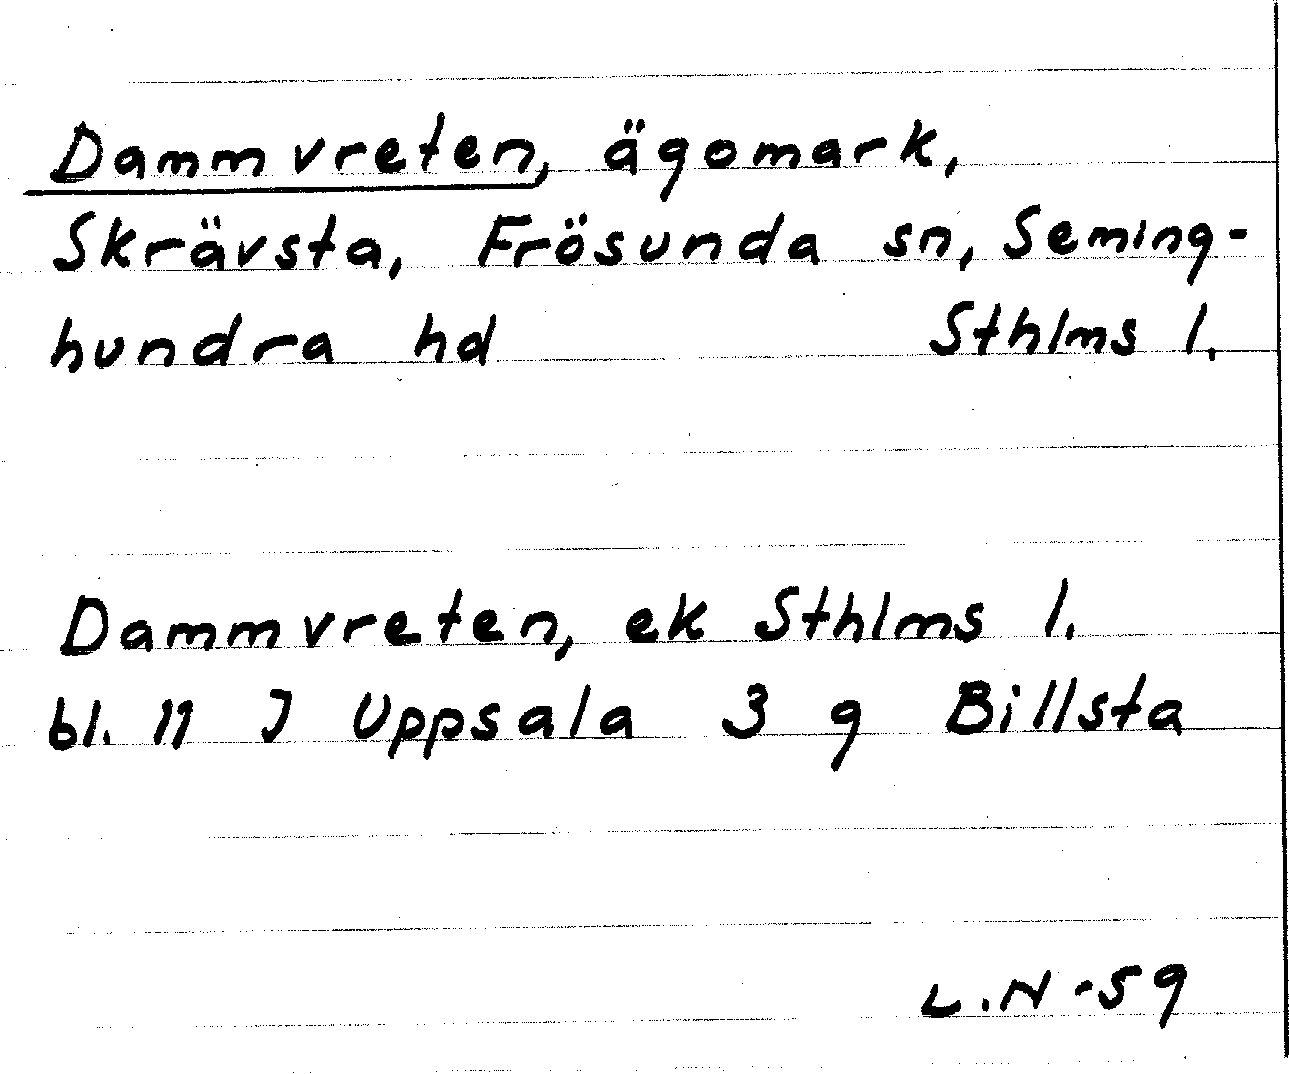 Dammvreten, ägomark,
Skrävsta, Frösunda sn, Seming-
hundra hd Sthlms l.
Dammvreten, ek Sthlms l.
bl. 11 J Uppsala 3 g Billsta
L.N -59